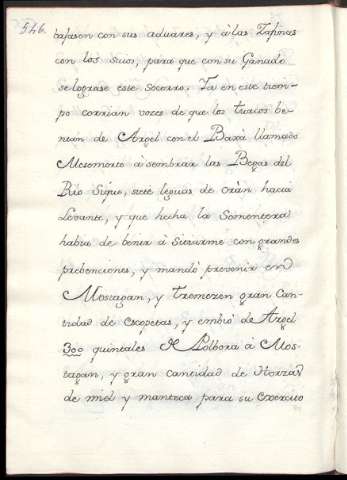 546.
bajasen con sus aduares, y á las Zafinas
con los suios, para que con su Ganado
se lograse este Socorro. Ya en este tiem-
po corrian voces de que los turcos be-
nian de Argel con el Baxá llamado
Mesomorto á sembrar las Begas del
Rio Sigue, siete leguas de orán hacia
Levante, y que hecha la Sementera
habia de benir á Sitiarme con grandes
prebenciones, y mandó prevenir en
Mostagan, y Tremezen gran Can-
tidad de escopetas, y embió de Argel
300 quintales de Polbora á Mos-
tagán, y gran cantidad de Horzas
de miel y manteca para su Exercito